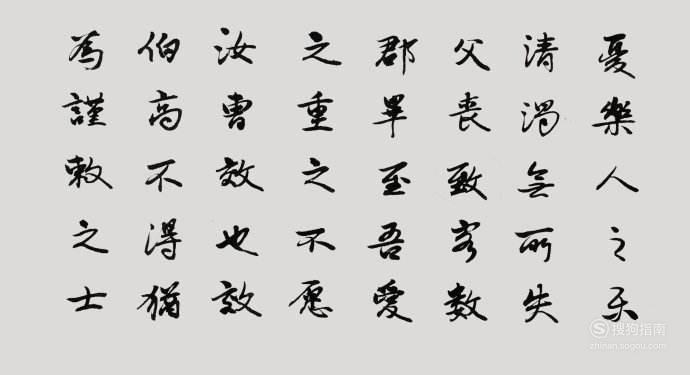 憂樂人之天
清濁無所失
父喪致客數
郡畢至吾愛
之重之不愿
汝曹效也效
伯高不得猶
為謹敕之士
搜狗指南
zhinan.sogou.com